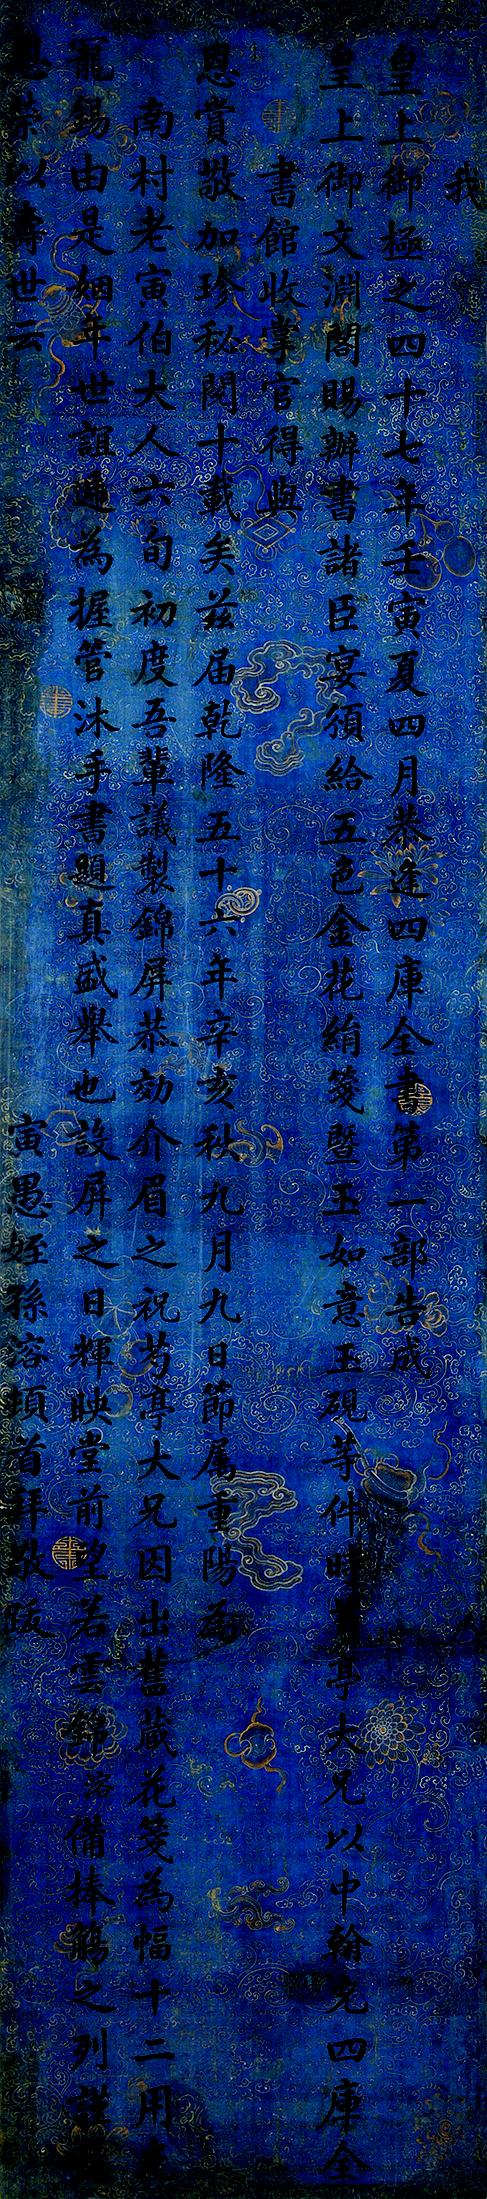 我
皇上御極之四十七年壬寅夏四月恭逢四庫全書第一部告成
皇上御文淵閣賜辦書諸臣宴須給五色金花絹箋暨玉如意玉硯等件時芍亭大兄以中翰充四庫全
書館收掌官得與
恩賞敬加珍秘閱十載矣茲届乾隆五十六年辛亥秋九月九日節属重陽為
南村老寅伯大人六旬初度吾輩議製錦屏恭効介眉之祝芍亭大兄因出舊蔵花箋為幅十二用
寵錫由是姻年世誼逓為握管沐手書題真盛舉也設屏之日輝映堂前望若雲錦溶備捧觴之列謹
恩榮以壽世云 寅愚姪孫溶頓首拜敬跋